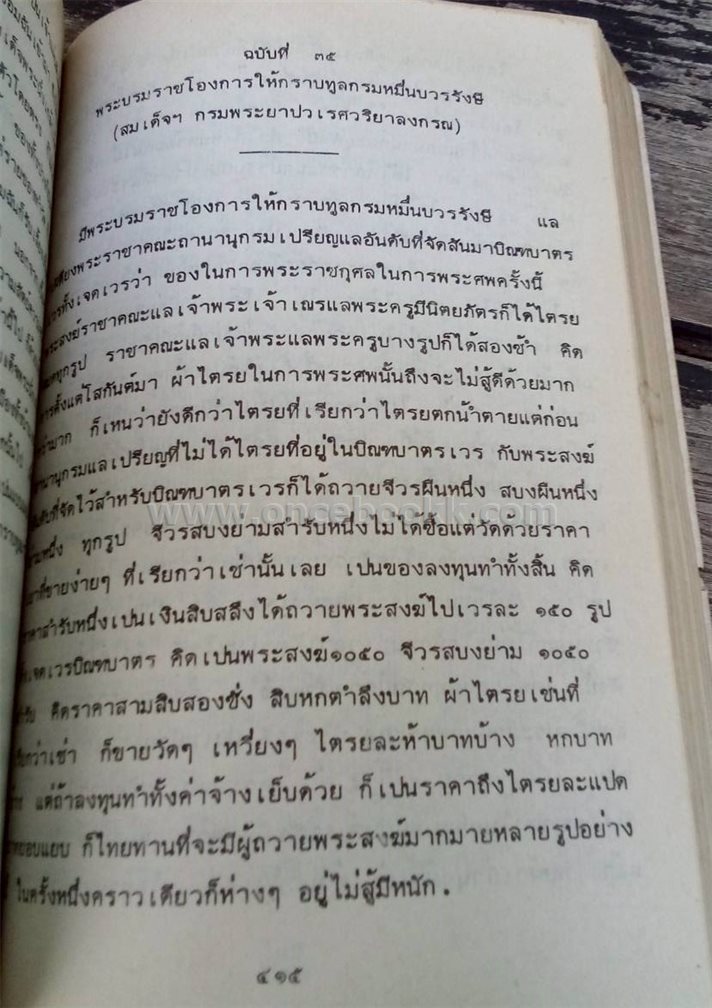 ฉบับที่ ๓๕
พระบรมราชโองการให้กราบทูลกรมหมื่นบวรรังษี
(สมเด็จฯ กรมพระยาปวเรศวริยาลงกรณ)
มีพระบรมราชโองการให้กราบทูลกรมหมื่นบวรรังษี แล
พระราชาคณะถานานุกรมเปรียญแลอันดับที่จัดสันมาบิณฑบาตร
ทั้งเจดเวรว่า ของในการพระราชกุศลในการพระศพครั้งนี้
พระสงฆ์ราชาคณะแลเจ้าพระเจ้าเณรแลพระครูมีนิตยภัตรก็ได้ไตรย
ทุกรูป ราชาคณะแลเจ้าพระแลพระครูบางรูปก็ได้สองซ้ำ คิด
การตั้งแต่โสกันต์มา ผ้าไตรยในการพระศพนั้นถึงจะไม่สู้ดีด้วยมาก
ก็เหนว่ายังดีกว่าไตรยที่เรียกว่าไตรยตกน้ำตายแต่ก่อน
ถานานุกรมแลเปรียญที่ไม่ได้ไตรยที่อยู่ในบิณฑบาตรเวร กับพระสงฆ์
อันดับที่จัดไว้สำหรับบิณฑบาตรเวรก็ได้ถวายจีวรผืนหนึ่ง สบงผืนหนึ่ง
www.oncebookk.com
ย่ามหนึ่ง ทุกรูป จีวรสบงยามสำรับหนึ่งไม่ได้ซื้อแต่วัดด้วยราคา
ที่ขายง่ายๆ ที่เรียกว่าเช่านั้นเลย เปนของลงทุนทำทั้งสิ้น คิด
ราคาสำรับหนึ่งเปนเงินสิบสลึงได้ถวายพระสงฆ์ไปเวรละ ๑๕๐ รูป
เจดเวรบิณฑบาตร คิดเปนพระสงฆ์๑๐๕๐ จีวรสบงย่าม ๑๐๕๐
คิดราคาสามสิบสองชั่ง สิบหกตำลึงบาท ผ้าไตรยเช่นที่
ว่าเช่า ก็ขายวัดๆ เหวี่ยงๆ ไตรยละห้าบาทบ้าง หกบาท
แต่ถ้าลงทุนทำทั้งค่าจ้างเย็บด้วย ก็เปนราคาถึงไตรยละแปด
ก็ไทยทานที่จะมีผู้ถวายพระสงฆ์มากมายหลายรูปอย่าง
ในครั้งหนึ่งคราวเดียวก็ห่างๆ อยู่ไม่สู้มีหนัก.
๔๑๕